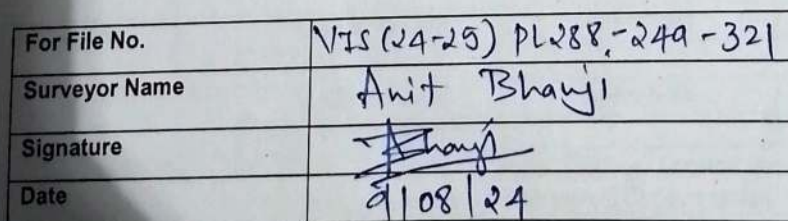 For File No. VIS (24-25) PL288-249-321
Surveyor Name Anit Bhanji
Signature Bhanji
Date 9/08/24